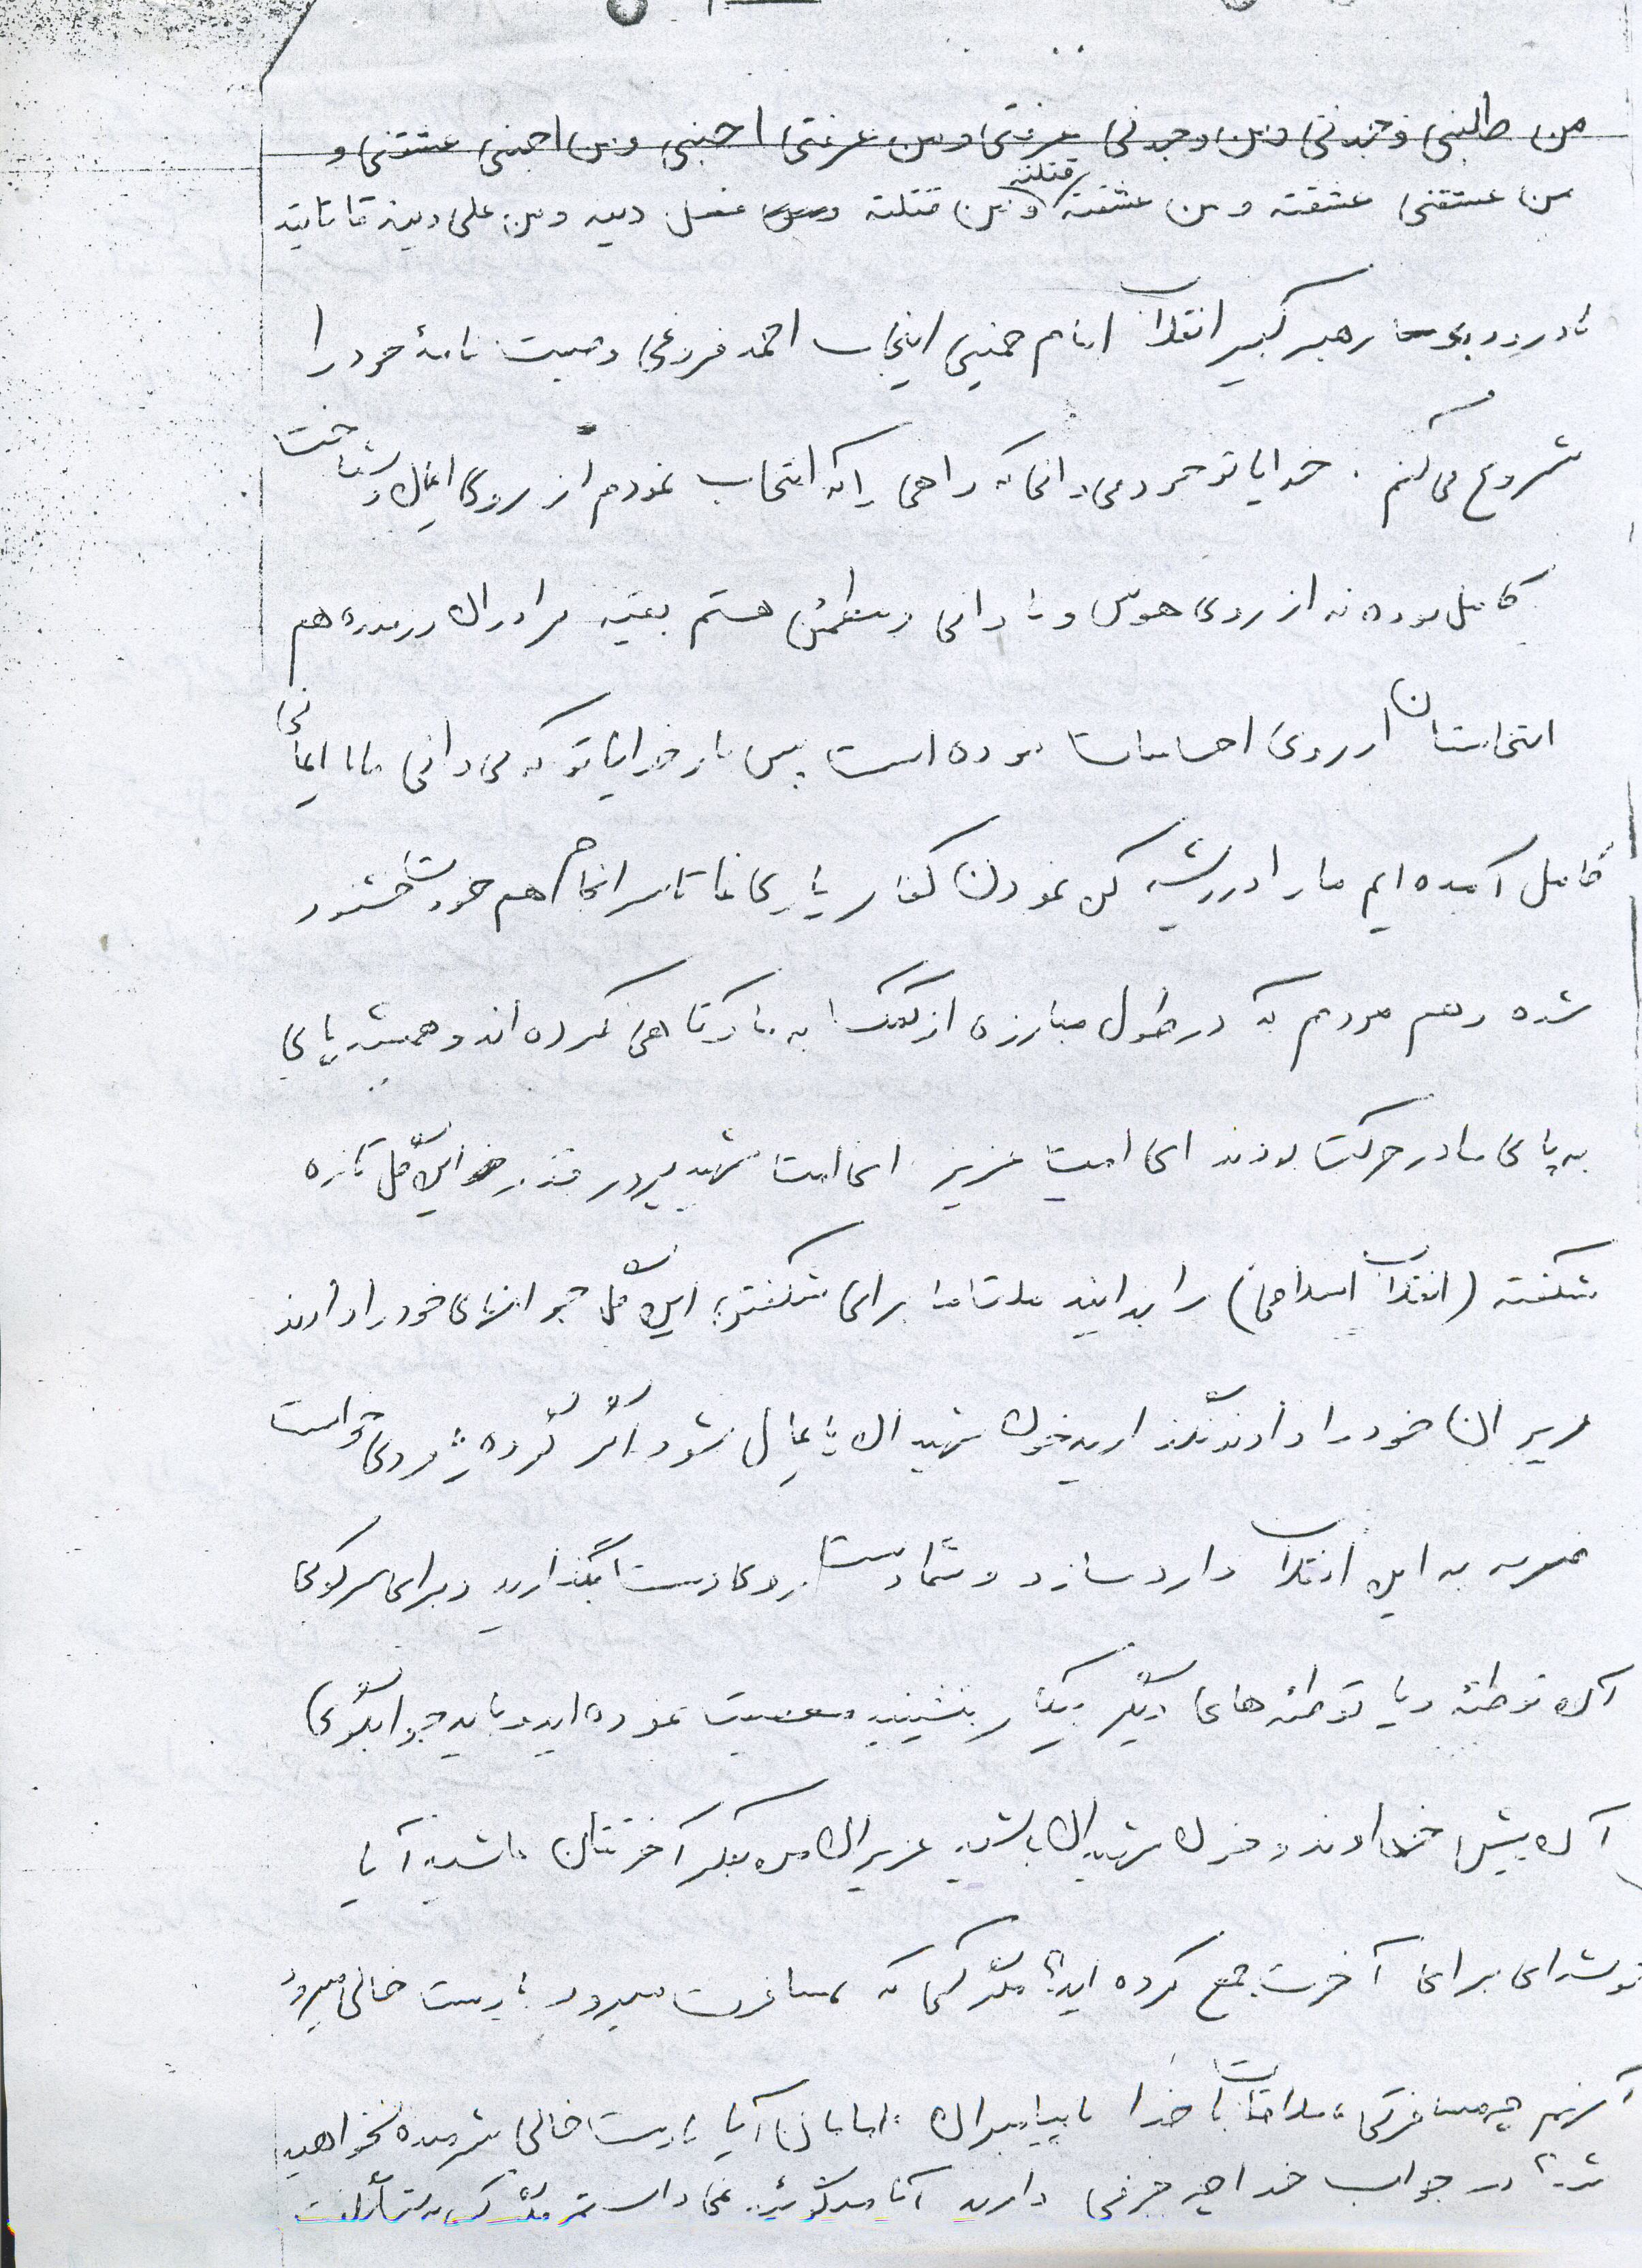 من طلبنی وجدنی ومن وجدنی عرفنی ومن عرفنی احبنی ومن احبنی عشقنی و
من عشقنی عشقته ومن عشقته قتلته ومن قتلته فعلی دیته ومن علی دیته فانا دیته
با درود بر رهبر کبیر انقلاب امام خمینی اینجانب احمد فروغی وصیت نامۀ خود را
شروع می کنم . خدایا تو خود می دانی که راهی را که انتخاب نمودم از روی ایمان و شناخت
کامل بوده نه از روی هوس و نادانی و مطمئن هستم بقیه برادران رزمنده هم
انتخابشان از روی احساسات نبوده است پس بار خدایا تو که می دانی ما با ایمانی
کامل آمده ایم ما را در ریشه کن نمودن کفار یاری نما تا سرانجام هم خودت خشنود
شده و هم مردم که در طول مبارزه از کمک به ما کوتاهی نکرده اند و همیشه پای
به پای ما در حرکت بودند ای امت عزیز ای امت شهید پرور قدر این گل تازه
شکفته (انقلاب اسلامی) را بدانید ملت ما برای شکفتن این گل جوانهای خود را دادند
عزیزان خود را دادند نگذارید خون شهیدان پایمال شود اگر گروه یا فردی خواست
ضربه به این انقلاب وارد سازد و شما دست روی دست بگذارید و برای سرکوبی
آن توطئه و یا توطئه های دیگر بیکار بنشینید معصیت نموده اید و باید جوابگوی
آن پیش خداوند و خون شهیدان باشید عزیزان من بفکر آخرتتان باشید آیا
توشه ای برای آخرت جمع کرده اید؟ مگر کسی که بمسافرت میرود با دست خالی میرود
آنهم چه مسافرتی، ملاقات با خدا با پیامبران، امامان آیا با دست خالی شرمنده نخواهید
شد؟ در جواب خدا چه حرفی دارید آیا میگوئید نمی دانستم